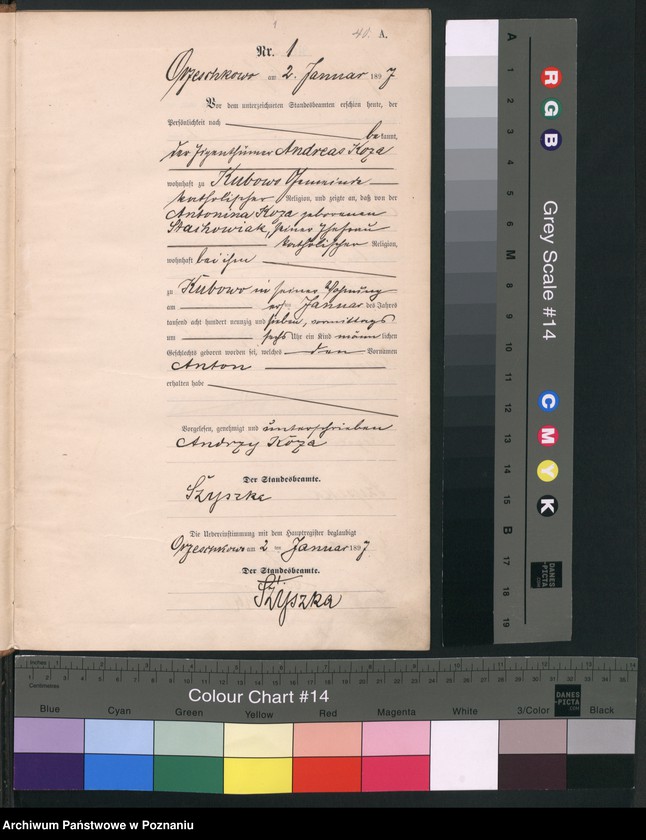 1
40. A.
Nr. 1
Orzeschkowo am 2. Januar 1897
Vor dem unterzeichneten Standesbeamten erschien heute, der
Persönlichkeit nach
bekannt,
der Eigenthümer Andreas Koza
wohnhaft zu Kubowo Gemeinde
katholischer Religion, und zeigte an, daß von der
Antonina Koza geborenen
Stachowiak, seiner Ehefrau
katholischer Religion,
wohnhaft bei ihm
zu Kubowo in seiner Wohnung
am ersten Januar des Jahres
tausend acht hundert neunzig und sieben, vormittags
um sechs Uhr ein Kind männlichen
Geschlechts geboren worden sei, welches den Vornamen
Anton
erhalten habe
Vorgelesen, genehmigt und unterschrieben
Andrzy Koza
Der Standesbeamte.
Szyszka
Die Uebereinstimmung mit dem Hauptregister beglaubigt
Orzeschkowo am 2 ten Januar 1897
Der Standesbeamte.
Szyszka
A 1 2 3 4 5 6 M 8 9 10 11 12 13 14 15 B 17 18 19
R G B
Grey Scale #14
C M Y K
DANES-PICTA.COM
Inches
Centimetres
Colour Chart #14
DANES-PICTA.COM
Blue Cyan Green Yellow Red Magenta White 3/Color Black
Archiwum Państwowe w Poznaniu